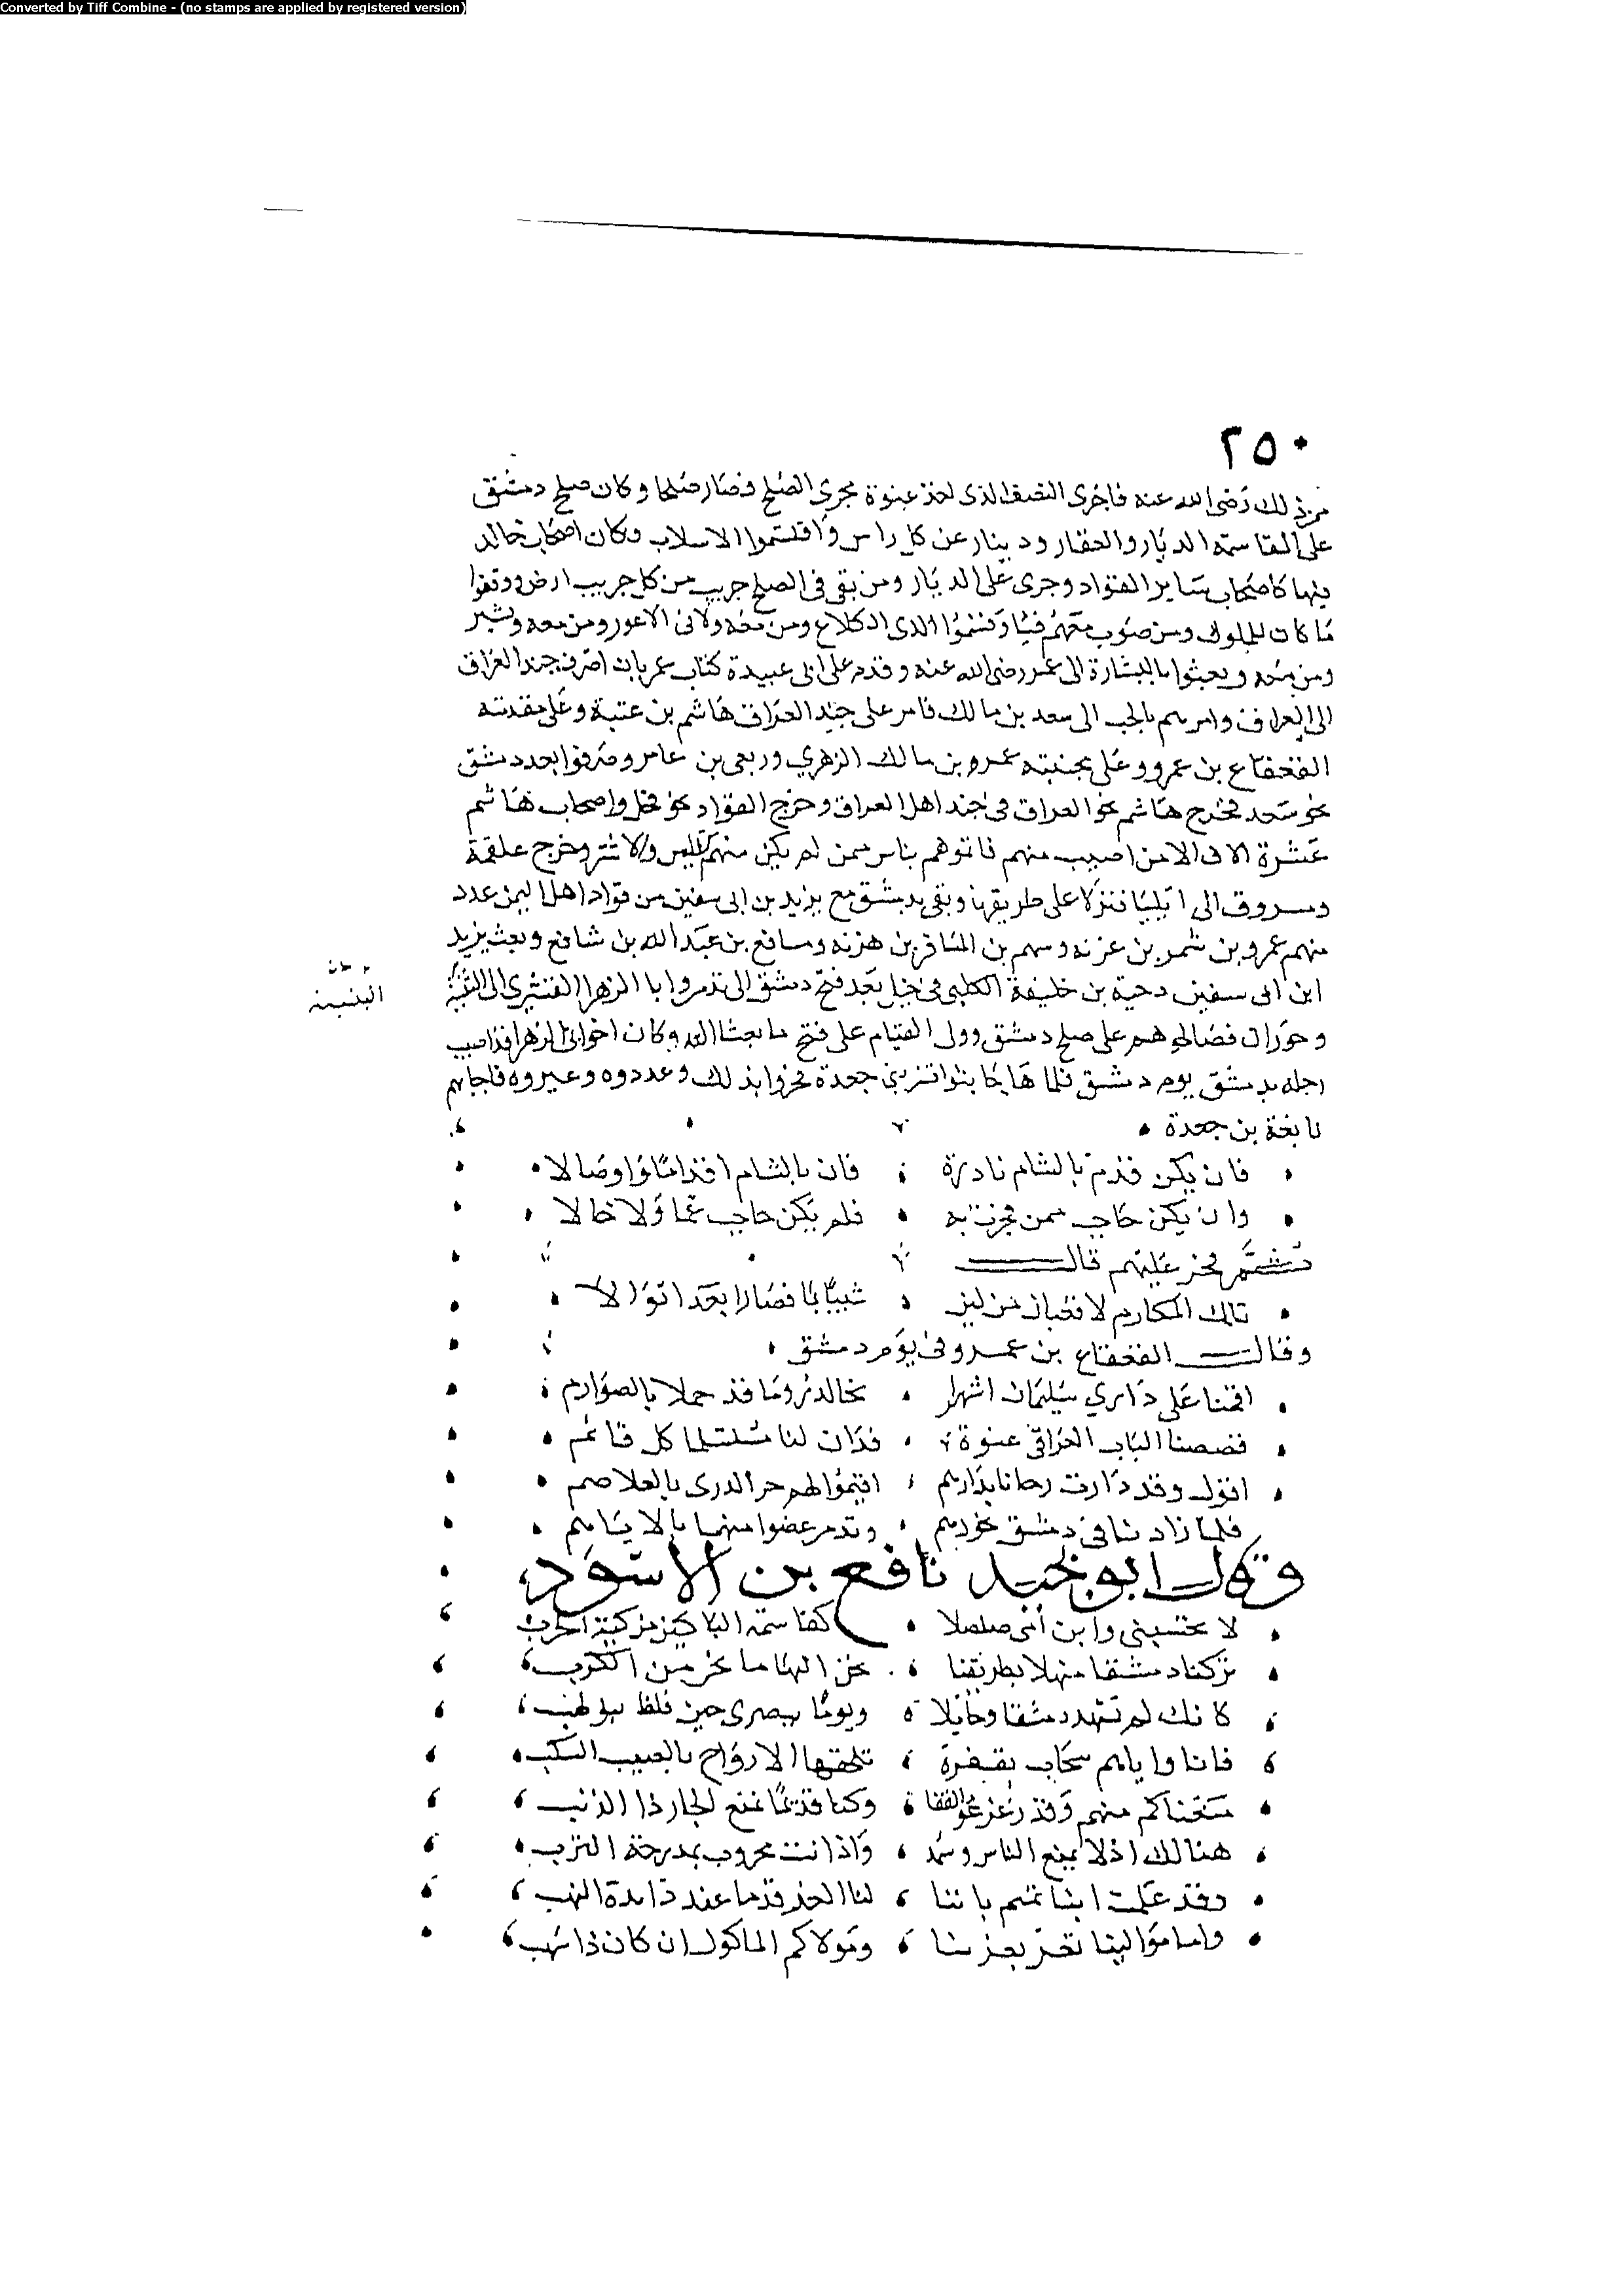 Converted by Tiff Combine - (no stamps are applied by registered version)
٢٥٠
من ذلك رضى الله عنه فاجرى النصف الذى اخذ عنوة مجرى الصلح فصار صلحا وكان صلح دمشق
على المقاسمة الديار والعقار ودينار عن كل راس واقتسموا الاسلاب وكان اصحاب خالد
فيها كاصحاب ساير القواد وجرى على الديار ومن بقى فى الصلح جريب من كل جريب ارض ووقفوا
ما كان للملوك ومن صوب معهم فيئا وقسموا لذى الكلاع ومن معه ولابى الاعور ومن معه وبشير
ومن معه وبعثوا بالبشارة الى عمر رضى الله عنه وقدم على ابى عبيدة كتاب عمر بان اصرف جند العراق
الى العراق وامرهم بالحب الى سعد بن مالك فامر على جند العراق هاشم بن عتبة وعلى مقدمته
القعقاع بن عمرو وعلى مجنبته عمرو بن مالك الزهري وربعى بن عامر وصرفوا بعد دمشق
نحو سعد فخرج هاشم نحو العراق فى جند اهل العراق وخرج القواد نحو فحل واصحاب هاشم
عشرة الاف الا من اصيب منهم فاتوهم بناس ممن لم يكن منهم قيس والاشتر وخرج علقمة
ومسروق الى ايليا فنزلا على طريقها وبقى بدمشق مع يزيد بن ابى سفين من قواد اهل اليمن عدد
منهم عمرو بن شمر بن غزية وسهم بن المسافر بن هزمة ومسافع بن عبد الله بن شافع وبعث يزيد
ابن ابى سفين دحية بن خليفة الكلبى فى خيل بعد فتح دمشق الى تدمر وابا الزهرا القشيرى الى البثنية
البثنية
وحوران فصالحوهم على صلح دمشق وولى القيام على فتح ما بعثا اليه وكان اخو ابى الزهرا قد اصيب
رجله بدمشق يوم دمشق فلما هاجا بنوا قشير بنى جعدة فخروا بذلك وعددوه وعيروه فاجابهم
نابغة بن جعدة
فان يكن قدم بالشام نادرة فان بالشام اقداما واوصالا
وان يكن حاجب ممن فخرت به فلم يكن حاجب عما ولا خالا
ثم فخر عليهم قال
تلك المكارم لا قعبان من لبن شيبا بما فصارا بعد ابوالا
وقال القعقاع بن عمرو فى يوم دمشق
اقمنا على داري سليمان اشهرا نجالد روما قد حملا بالصوارم
فضضنا الباب العراقى عنوة فدان لنا مستسلما كل قائم
اقول وقد دارت رحانا بدارهم اقيموا لهم حر الذرى بالغلاصم
فلما زادنا فى دمشق نحورهم وتدمر عضوا منهما بالاباهم
وقول ابو نجيد نافع بن الاسود
لا تحسبنى وابن امى صلصلا
تركنا دمشقا منهلا بطريقنا
كانك لم تشهد دمشقا وحائلا ويوما ببصرى حين
فانا واياهم سحاب بقفرة تلحقها الارواح بالصيب السكب
منعناكم منهم وكنا قديما نمنع الجار ذا الذنب
هنالك اذ لا يمنع الناس
وقد علمت ابنا تميم باننا لنا العز قدما عند النهب
واما موالينا ومولاكم الماكول ان كان ذا نهب